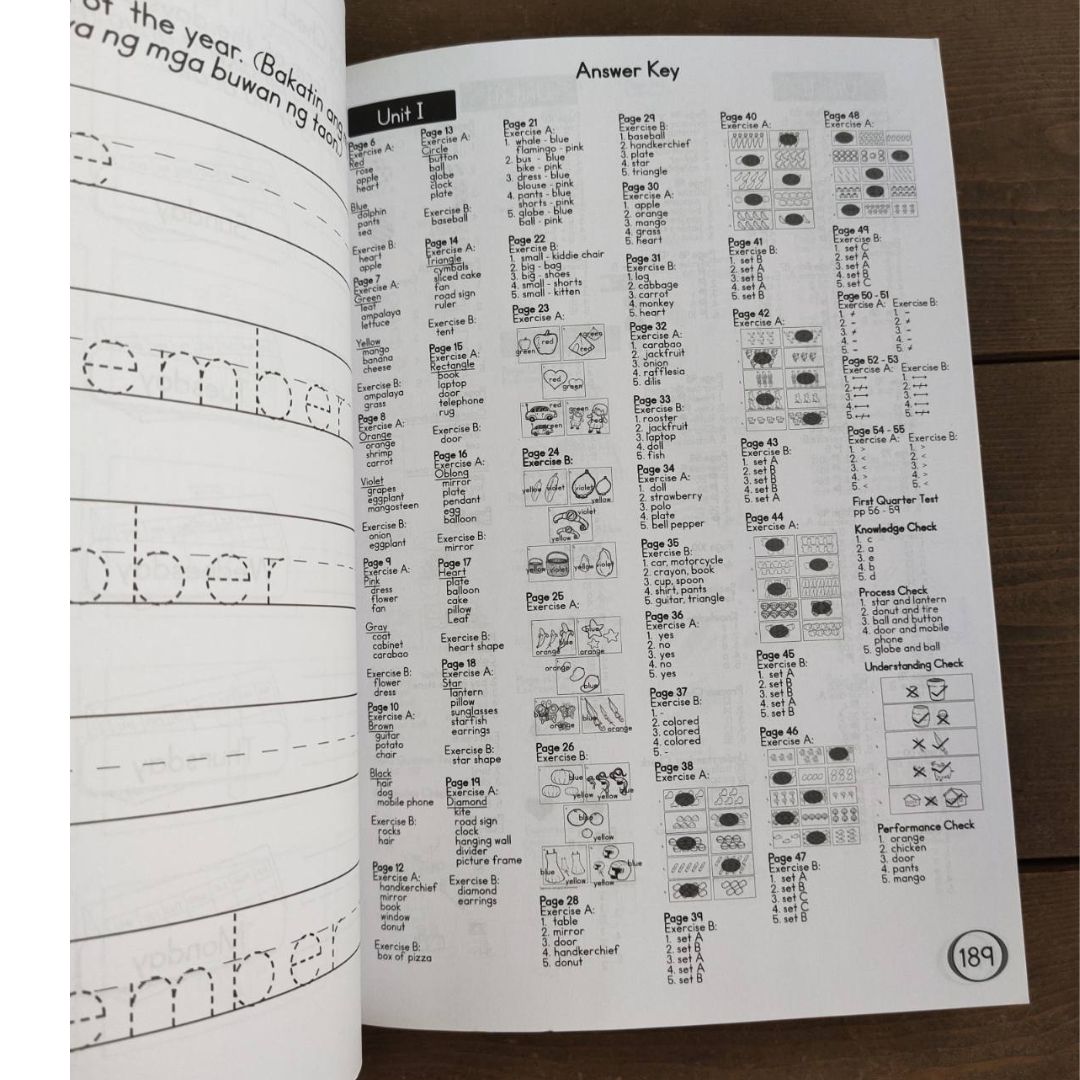 of the year. (Bakatin ang
ng mga buwan ng taon.)
e
ember
ber
ember
Answer Key
Unit I
Page 6
Exercise A:
Red
rose
apple
heart
Blue
dolphin
pants
sea
Exercise B:
heart
apple
Page 7
Exercise A:
Green
leaf
ampalaya
lettuce
Yellow
mango
banana
cheese
Exercise B:
ampalaya
grass
Page 8
Exercise A:
Orange
orange
shrimp
carrot
Violet
grapes
eggplant
mangosteen
Exercise B:
onion
eggplant
Page 9
Exercise A:
Pink
dress
flower
fan
Gray
coat
cabinet
carabao
Exercise B:
flower
dress
Page 10
Exercise A:
Brown
guitar
potato
chair
Black
hair
dog
mobile phone
Exercise B:
rocks
hair
Page 12
Exercise A:
handkerchief
mirror
book
window
donut
Exercise B:
box of pizza
Page 13
Exercise A:
Circle
button
ball
globe
clock
plate
Exercise B:
baseball
Page 14
Exercise A:
Triangle
cymbals
sliced cake
fan
road sign
ruler
Exercise B:
tent
Page 15
Exercise A:
Rectangle
book
laptop
door
telephone
rug
Exercise B:
door
Page 16
Exercise A:
Oblong
mirror
plate
pendant
egg
balloon
Exercise B:
mirror
Page 17
Heart
plate
balloon
cake
pillow
Leaf
Exercise B:
heart shape
Page 18
Exercise A:
Star
lantern
pillow
sunglasses
starfish
earrings
Exercise B:
star shape
Page 19
Exercise A:
Diamond
kite
road sign
clock
hanging wall
divider
picture frame
Exercise B:
diamond
earrings
Page 21
Exercise A:
1. whale - blue
flamingo - pink
2. bus - blue
bike - pink
3. dress - blue
blouse - pink
4. pants - blue
shorts - pink
5. globe - blue
ball - pink
Page 22
Exercise B:
1. small - kiddie chair
2. big - bag
3. big - shoes
4. small - shorts
5. small - kitten
Page 23
Exercise A:
green red
green red
red green
red green
green red
Page 24
Exercise B:
yellow violet
violet yellow
violet yellow
yellow violet
yellow violet
Page 25
Exercise A:
orange blue
blue orange
orange blue
blue orange
blue orange
Page 26
Exercise B:
blue yellow
blue yellow
blue yellow
blue yellow
blue yellow
Page 28
Exercise A:
1. table
2. mirror
3. door
4. handkerchief
5. donut
Page 29
Exercise B:
1. baseball
2. handkerchief
3. plate
4. star
5. triangle
Page 30
Exercise A:
1. apple
2. orange
3. mango
4. grass
5. heart
Page 31
Exercise B:
1. log
2. cabbage
3. carrot
4. monkey
5. heart
Page 32
Exercise A:
1. carabao
2. jackfruit
3. onion
4. rafflesia
5. dilis
Page 33
Exercise B:
1. rooster
2. jackfruit
3. laptop
4. doll
5. fish
Page 34
Exercise A:
1. doll
2. strawberry
3. polo
4. plate
5. bell pepper
Page 35
Exercise B:
1. car, motorcycle
2. crayon, book
3. cup, spoon
4. shirt, pants
5. guitar, triangle
Page 36
Exercise A:
1. yes
2. no
3. yes
4. no
5. yes
Page 37
Exercise B:
1. -
2. colored
3. colored
4. colored
5. -
Page 38
Exercise A:
Page 39
Exercise B:
1. set A
2. set B
3. set A
4. set A
5. set B
Page 40
Exercise A:
Page 41
Exercise B:
1. set B
2. set A
3. set B
4. set A
5. set B
Page 42
Exercise A:
Page 43
Exercise B:
1. set A
2. set B
3. set B
4. set B
5. set A
Page 44
Exercise A:
Page 45
Exercise B:
1. set A
2. set B
3. set B
4. set A
5. set B
Page 46
Exercise A:
Page 47
Exercise B:
1. set A
2. set B
3. set C
4. set C
5. set B
Page 48
Exercise A:
Page 49
Exercise B:
1. set C
2. set A
3. set A
4. set B
5. set C
Page 50 - 51
Exercise A: Exercise B:
Page 52 - 53
Exercise A: Exercise B:
Page 54 - 55
Exercise A: Exercise B:
1. > 1. >
2. < 2. >
3. < 3. >
4. > 4. <
5. < 5. <
First Quarter Test
pp 56 - 59
Knowledge Check
1. c
2. a
3. e
4. b
5. d
Process Check
1. star and lantern
2. donut and tire
3. ball and button
4. door and mobile
phone
5. globe and ball
Understanding Check
Performance Check
1. orange
2. chicken
3. door
4. pants
5. mango
189